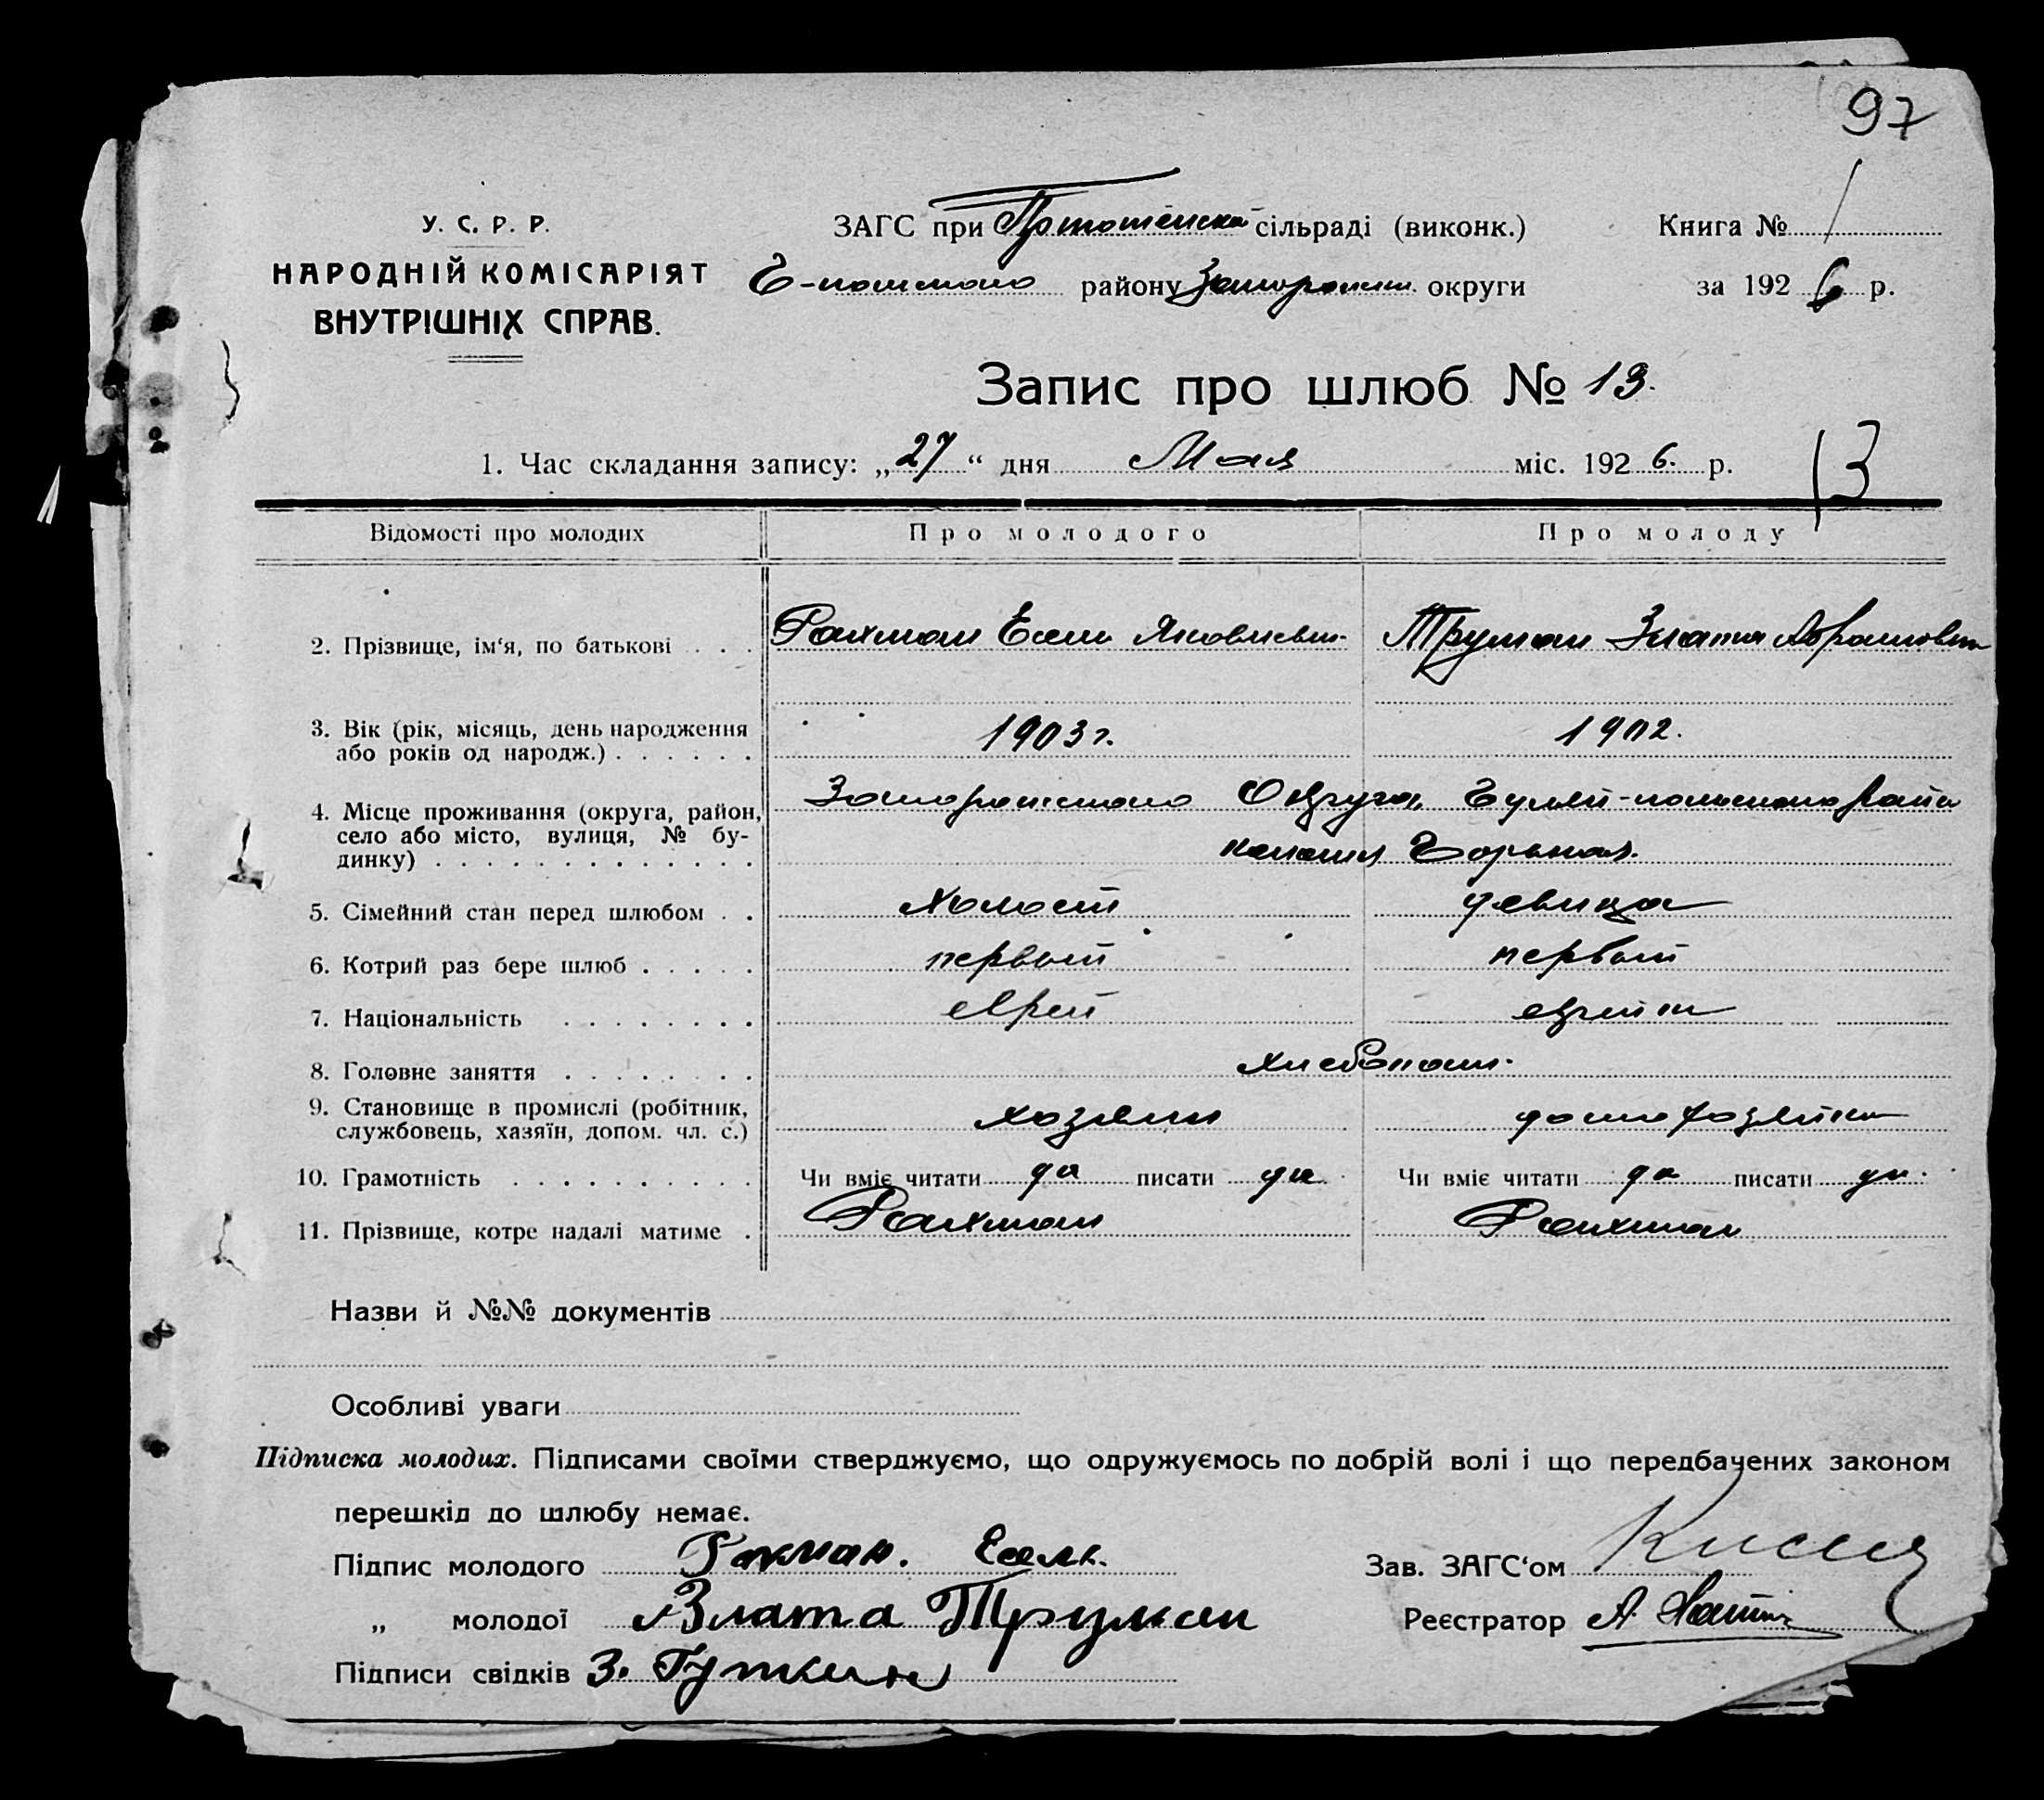 97
У. С. Р. Р.
НАРОДНІЙ КОМІСАРІЯТ
ВНУТРІШНІХ СПРАВ.
ЗАГС при сільраді (виконк.)
району Запорожск. округи
Книга № 1
за 1926 р.
Запис про шлюб № 13.
1. Час складання запису: „27“ дня Мая міс. 1926. р.
13
Відомості про молодих Про молодого Про молоду
2. Прізвище, ім‘я, по батькові . . . Рахман Яковлевич. Труман Злата Абрамовна
3. Вік (рік, місяць, день народження
або років од народж.) . . . . . . 1903 г. 1902.
4. Місце проживання (округа, район, Запорожского Округа, Гуляй-польского район
село або місто, вулиця, № бу-
динку) . . . . . . . . . . . . . колония Горькая.
5. Сімейний стан перед шлюбом . . холост девица
6. Котрий раз бере шлюб . . . . . первый первый
7. Національність . . . . . . . . еврей еврейка
8. Головне заняття . . . . . . . . хлебопаш.
9. Становище в промислі (робітник,
службовець, хазяїн, допом. чл. с.) хозяин домохозяйка
10. Грамотність . . . . . . . . . . Чи вміє читати да писати да. Чи вміє читати да писати да.
11. Прізвище, котре надалі матиме . Рахман Рахман
Назви й №№ документів
Особливі уваги
Підписка молодих. Підписами своїми стверджуємо, що одружуємось по добрій волі і що передбачених законом
перешкід до шлюбу немає.
Підпис молодого Рахман.
Зав. ЗАГС‘ом
„ молодої Злата Труман
Реєстратор А.
Підписи свідків З. Гуткин